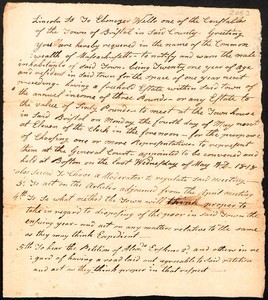 Lincoln Ss To Ebenezer Wells one of the Constables
of the Town of Bristol in Said County Greeting
You are hereby required in the name of the Common
wealth of Massachusetts to notify and warn the male
inhabitants of said Town, being Twenty one years of age
and resident in said Town for the space of one year next
preceding, having a freehold Estate within said Town of the
annual income of three Pounds or any Estate to
the value of Sixty Pounds to meet at the Town House
in said Bristol on Monday the fourth day of May next
at Eleven of the Clock in the forenoon for the purpose
of Choosing one or more Representatives to represent
them at the General Court appointed to be convened and
held at Boston on the last Wednesday of May
also Second To Choose a Moderator to regulate Said meeting
3d To act on the Articles adjourned from the last meeting
4th To See what method the Town will propose to
take in regard to disposing of the poor in said Town the
ensuing year and act on any matters relative to the same
as they may think Expedient
5th To hear the Petition of and others in re
gard of having a road laid out agreeable to said petition
and act as they think proper in that respect